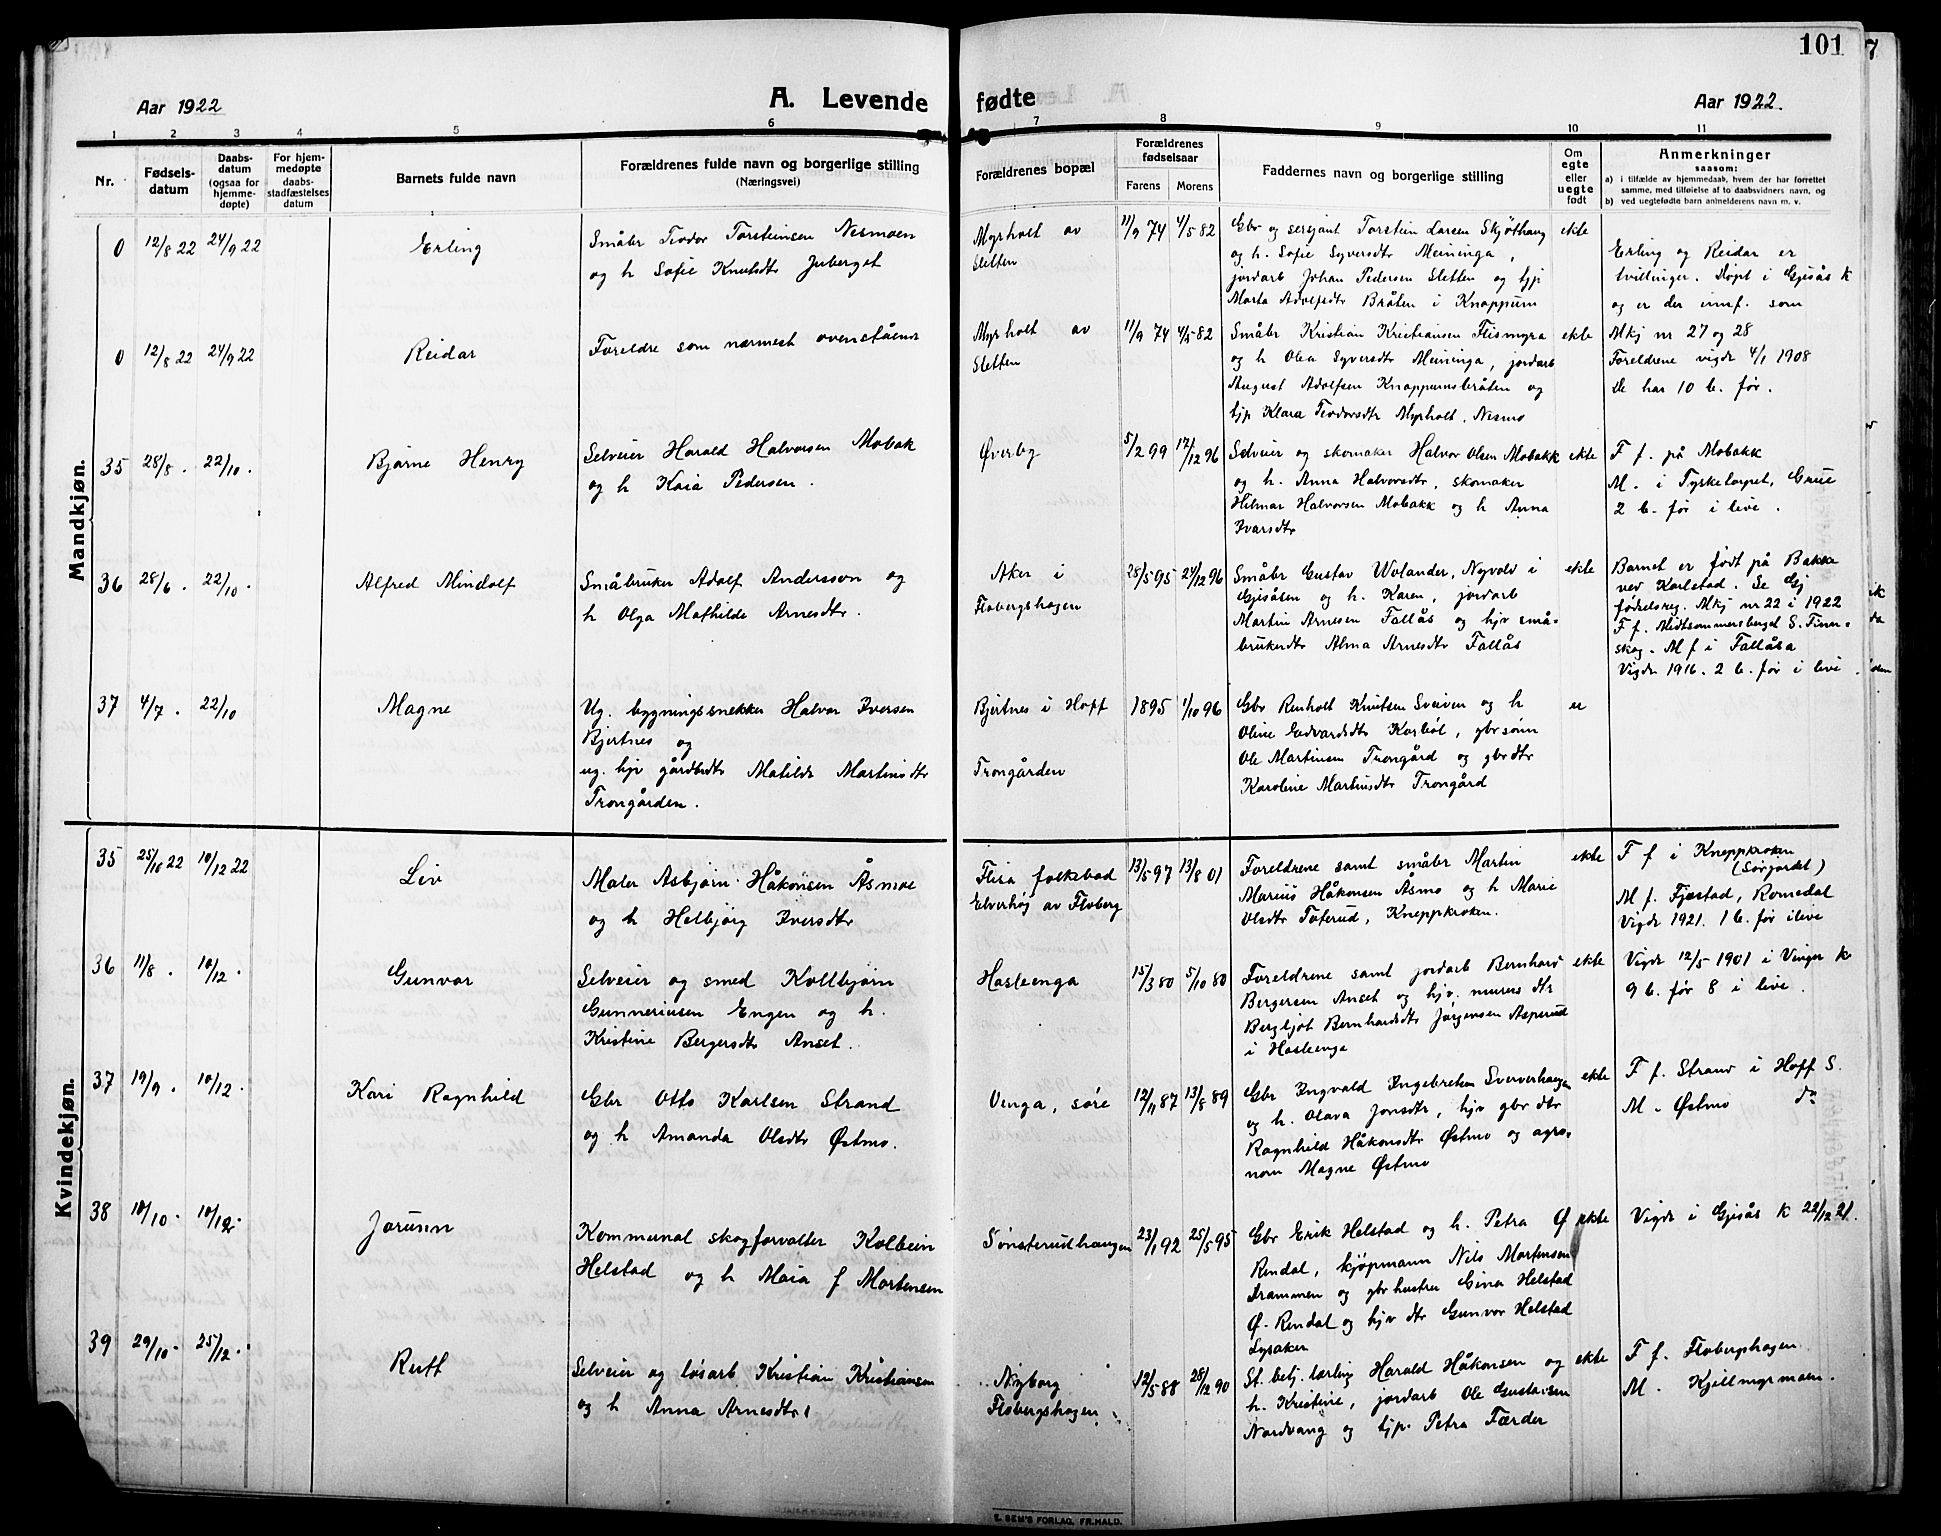 101
7
Aar 1922
A. Levende
fødte
Aar 1922.
1 2 3 4 5 6 7 8 9 10 11
Nr.
Fødsels-
datum
Daabs-
datum
(ogsaa for
hjemme-
døpte)
For hjem-
medøpte
daabs-
stadfæstelses
datum
Barnets fulde navn
Forældrenes fulde navn og borgerlige stilling
(Næringsvei)
Forældrenes bopæl
Forældrenes
fødselsaar
Farens Morens
Faddernes navn og borgerlige stilling
Om
egte
eller
uegte
født
Anmerkninger
saasom:
a) i tilfælde av hjemmedaab, hvem der har forrettet
samme, med tilføielse af to daabsvidners navn, og
b) ved uegtefødte barn anmelderens navn m. v.
Mandkjøn.
0 12/8 22 24/9 22
Erling
Småbr Teodor Torsteinsen Nesmoen
og h Sofie Knutsdtr Juberget
Myrholt av
Sletten
11/9 74 4/5 82
Gbr og sersjant Torstein Larsen Skjøthaug
og h. Sofie Syversdtr Meininga,
jordarb Johan Pedersen Sletten og tjp
Marta Adolfsdtr Bråten i Knappum
ekte
Erling og Reidar er
tvillinger. Døpt i Gjesås K
og er der innf. som
0 12/8 22 24/9 22
Reidar
Foreldre som nærmest ovenstående
Myrholt av
Sletten
11/9 74 4/5 82
Småbr Kristian Kristiansen Flismyra
og h Olea Syversdtr Meininga, jordarb
August Adolfsen Knappumsbråten og
tjp Klara Teodorsdtr Myrholt, Nesmo
ekte
Mkj nr 27 og 28
Foreldrene vigde 4/1 1908
De har 10 b. før.
35 28/8 . 22/10 .
Bjarne Henry
Selveier Harald Halvorsen Mobak
og h Kaia Pedersen.
Øverby
5/2 99 17/12 96
Selveier og skomaker Halvor Olsen Mobakk
og h. Anna Halvorsdtr, skomaker
Helmar Halvorsen Mobakk og h Anna
Ivarsdtr
ekte
F f. på Mobakk
M. i Tysketorpet, Grue
2 b. før i live.
36 28/6 . 22/10 .
Alfred Mindolf
Småbruker Adolf Andersson og
h. Olga Mathilde Arnesdtr.
Aker i
Flobergshagen
28/5 95 24/12 96
Småbr Gustav Wolander, Nyvold i
Gjesåsen og h. Karen, jordarb
Martin Arnesen Fallås og hjv små-
brukerdtr Alma Arnesdtr Fallås
ekte
Barnet er født på Bakke
ved Karlstad. Se Gj
fødselsreg. Mkj nr 22 i 1922
F f. Midtsommersberget S. Finn-
skog. M f i Fallåsa
Vigde 1916. 2 b. før i live.
37 4/7 . 22/10
Magne
Ug. bygningssnekker Halvor Iversen
Bjertnes og
ug. hjv gårdbdtr Matilde Martinsdtr
Trongården.
Bjertnes i Hoff
Trongården
1895 1/10 96
Gbr Renholt Knutsen Sveiven og h
Oline Edvardsdtr Karbøl, gbrsønn
Ole Martinsen Trongård og gbrdtr
Karoline Martinsdtr Trongård
Kvindekjøn.
35 25/10 22 10/12 22
Liv
Maler Asbjørn Håkonsen Åsmoe
og h Helbjørg Iversdtr
Flisa folkebad
Elverhøg av Floberg
13/5 97 13/8 01
Foreldrene samt småbr Martin
Marius Håkonsen Åsmo og h Marie
Olsdtr Toterud, Kneppkroken.
ekte
F f i Kneppkroken
(Sørjordet)
M f. Fjæstad, Romedal
Vigde 1921. 1 b. før ilive
36 11/8 . 10/12 .
Gunvor
Selveier og smed Kollbjørn
Gunneriusen Engen og h.
Kristine Bergersdtr Anset.
Hasleenga
15/3 80 5/10 80
Foreldrene samt jordarb Bernhard
Bergersen Anset og hjv. murers dtr
Bergljot Bernhardsdtr Jørgensen Asperud
i Hasleenga
ekte
Vigde 12/5 1901 i Vinger K
9 b. før 8 i live.
37 19/9 . 10/12 .
Kari Ragnhild
Gbr Otto Karlsen Strand
og h Amanda Olsdtr Østmo.
Venga, søre
12/11 87 13/8 89
Gbr Ingvald Ingebretsen Sververhaugen
og h. Olava Jonsdtr, hjv gbr dtr
Ragnhild Håkonsdtr Østmo og agro-
nom Magne Østmo
ekte
F f. Strand i Hoff S.
M - Østmo do
38 10/10 . 10/12 .
Jorunn
Kommunal skogforvalter Kolbein
Helstad og h Maia f Mortensen
Sønsterudhaugen
23/1 92 25/5 95
Gbr Erik Helstad og h. Petra Ø
Rendal, kjøpmann Nils Mortensen
Drammen og gbr hustru Gina Helstad
Ø. Rendal og hjv dtr Gunvor Helstad
Lysaker
ekte
Vigde i Gjesås K 22/12 21.
39 29/10 . 25/12 .
Rutt
Selveier og løsarb Kristian Kristiansen
og h Anna Arnesdtr
Nyborg
Flobergshagen
12/5 88 28/12 90
St. betj. lærling Harald Håkonsen og
h. Kristine, jordarb Ole Gustavsen
Nordvang og tjp. Petra Færder
ekte
F f. Flobergshagen
M. Kjellmyrmoen.
E. SEM'S FORLAG, FR.HALD.